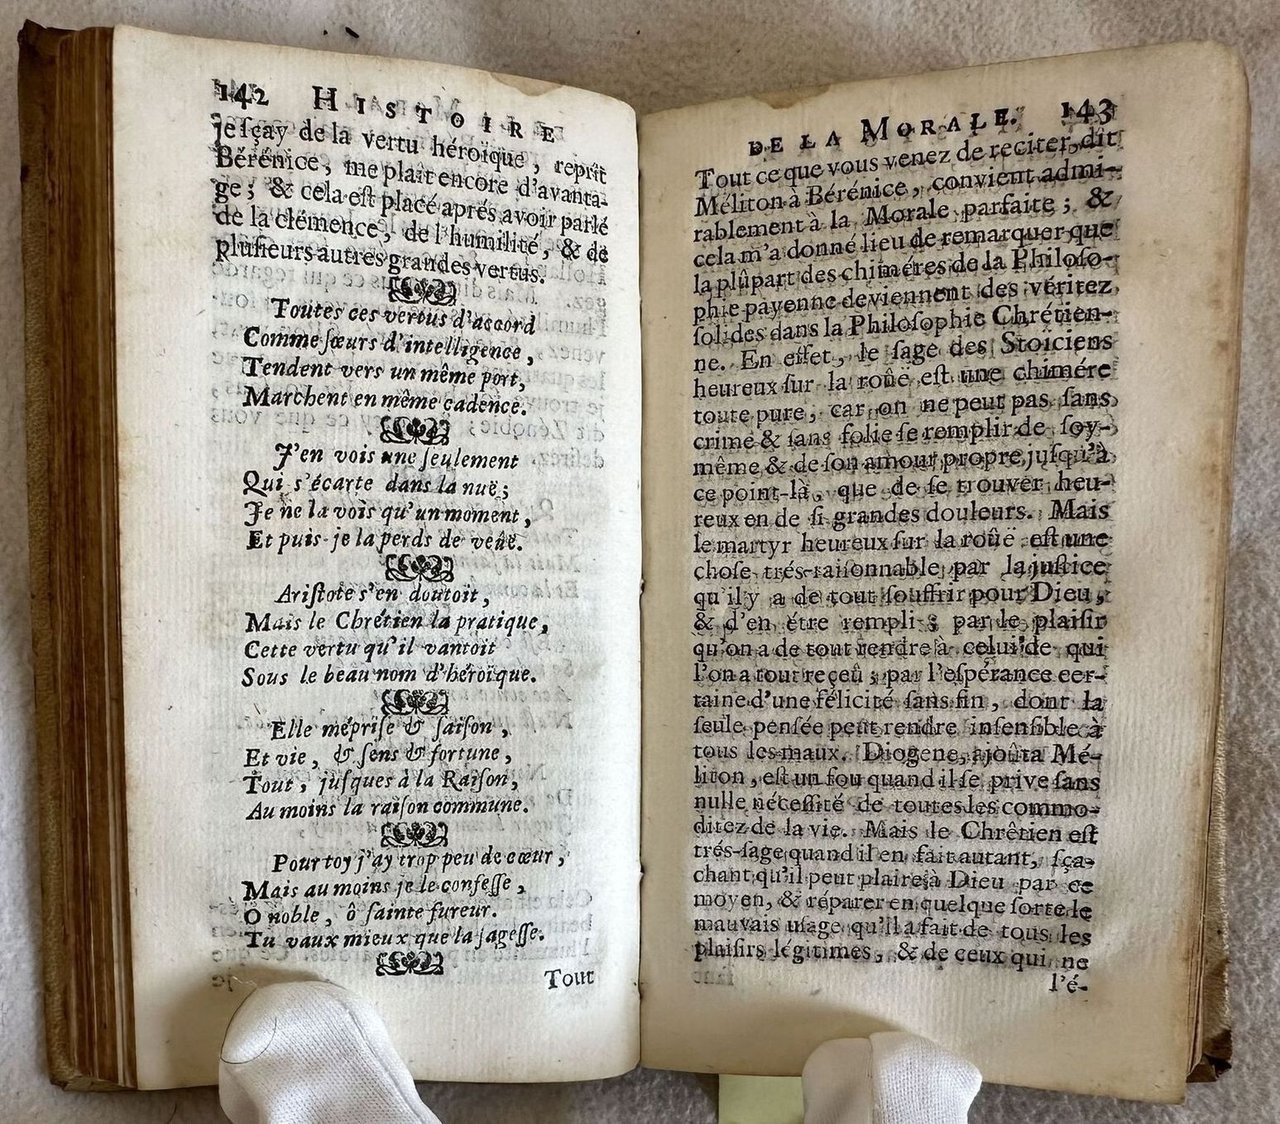 142 HISTOIRE
je sçay de la vertu héroïque, reprit
Bérénice, me plait encore d'avanta-
ge; & cela est placé aprés avoir parlé
de la clémence, de l'humilité, & de
plusieurs autres grandes vertus.
Toutes ces vertus d'accord
Comme sœurs d'intelligence,
Tendent vers un même port,
Marchent en même cadence.
J'en vois une seulement
Qui s'écarte dans la nuë;
Je ne la vois qu'un moment,
Et puis je la perds de veuë.
Aristote s'en doutoit,
Mais le Chrétien la pratique,
Cette vertu qu'il vantoit
Sous le beau nom d'héroïque.
Elle méprise & saison,
Et vie, & sens & fortune,
Tout, jusques à la Raison,
Au moins la raison commune.
Pour toy j'ay trop peu de cœur,
Mais au moins je le confesse,
O noble, ô sainte fureur.
Tu vaux mieux que la sagesse.
Tout
DE LA MORALE. 143
Tout ce que vous venez de reciter, dit
Méliton à Bérénice, convient admi-
rablement à la Morale parfaite; &
cela m'a donné lieu de remarquer que
la plûpart des chiméres de la Philoso-
phie payenne deviennent des véritez
solides dans la Philosophie Chrétien-
ne. En effet, le sage des Stoïciens
heureux sur la rouë est une chimére
toute pure, car on ne peut pas sans
crime & sans folie se remplir de soy-
même & de son amour propre jusqu'à
ce point-là, que de se trouver heu-
reux en de si grandes douleurs. Mais
le martyr heureux sur la rouë est une
chose trés-raisonnable par la justice
qu'il y a de tout souffrir pour Dieu,
& d'en étre rempli; par le plaisir
qu'on a de tout rendre à celui de qui
l'on a tout reçeû; par l'espérance cer-
taine d'une félicité sans fin, dont la
seule pensée peut rendre insensible à
tous les maux. Diogene, ajoûta Mé-
liton, est un fou quand il se prive sans
nulle nécessité de toutes les commo-
ditez de la vie. Mais le Chrêtien est
trés-sage quand il en fait autant, sça-
chant qu'il peut plaire à Dieu par ce
moyen, & réparer en quelque sorte le
mauvais usage qu'il a fait de tous les
plaisirs légitimes, & de ceux qui ne
l'é-